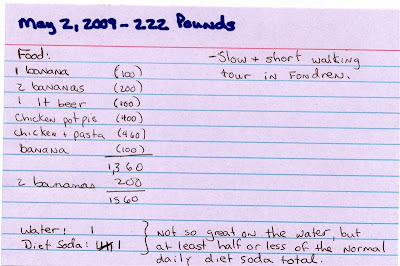 May 2, 2009 - 222 Pounds
Food:
1 banana (100)
2 bananas (200)
1 lt beer (100)
Chicken pot pie (400)
chicken + pasta (460)
banana (100)
1,360
2 bananas 200
1560
- Slow + short walking
tour in Fondren.
Water: |
Diet Soda: 卌 |
Not so great on the water, but
at least half or less of the normal
daily diet soda total.